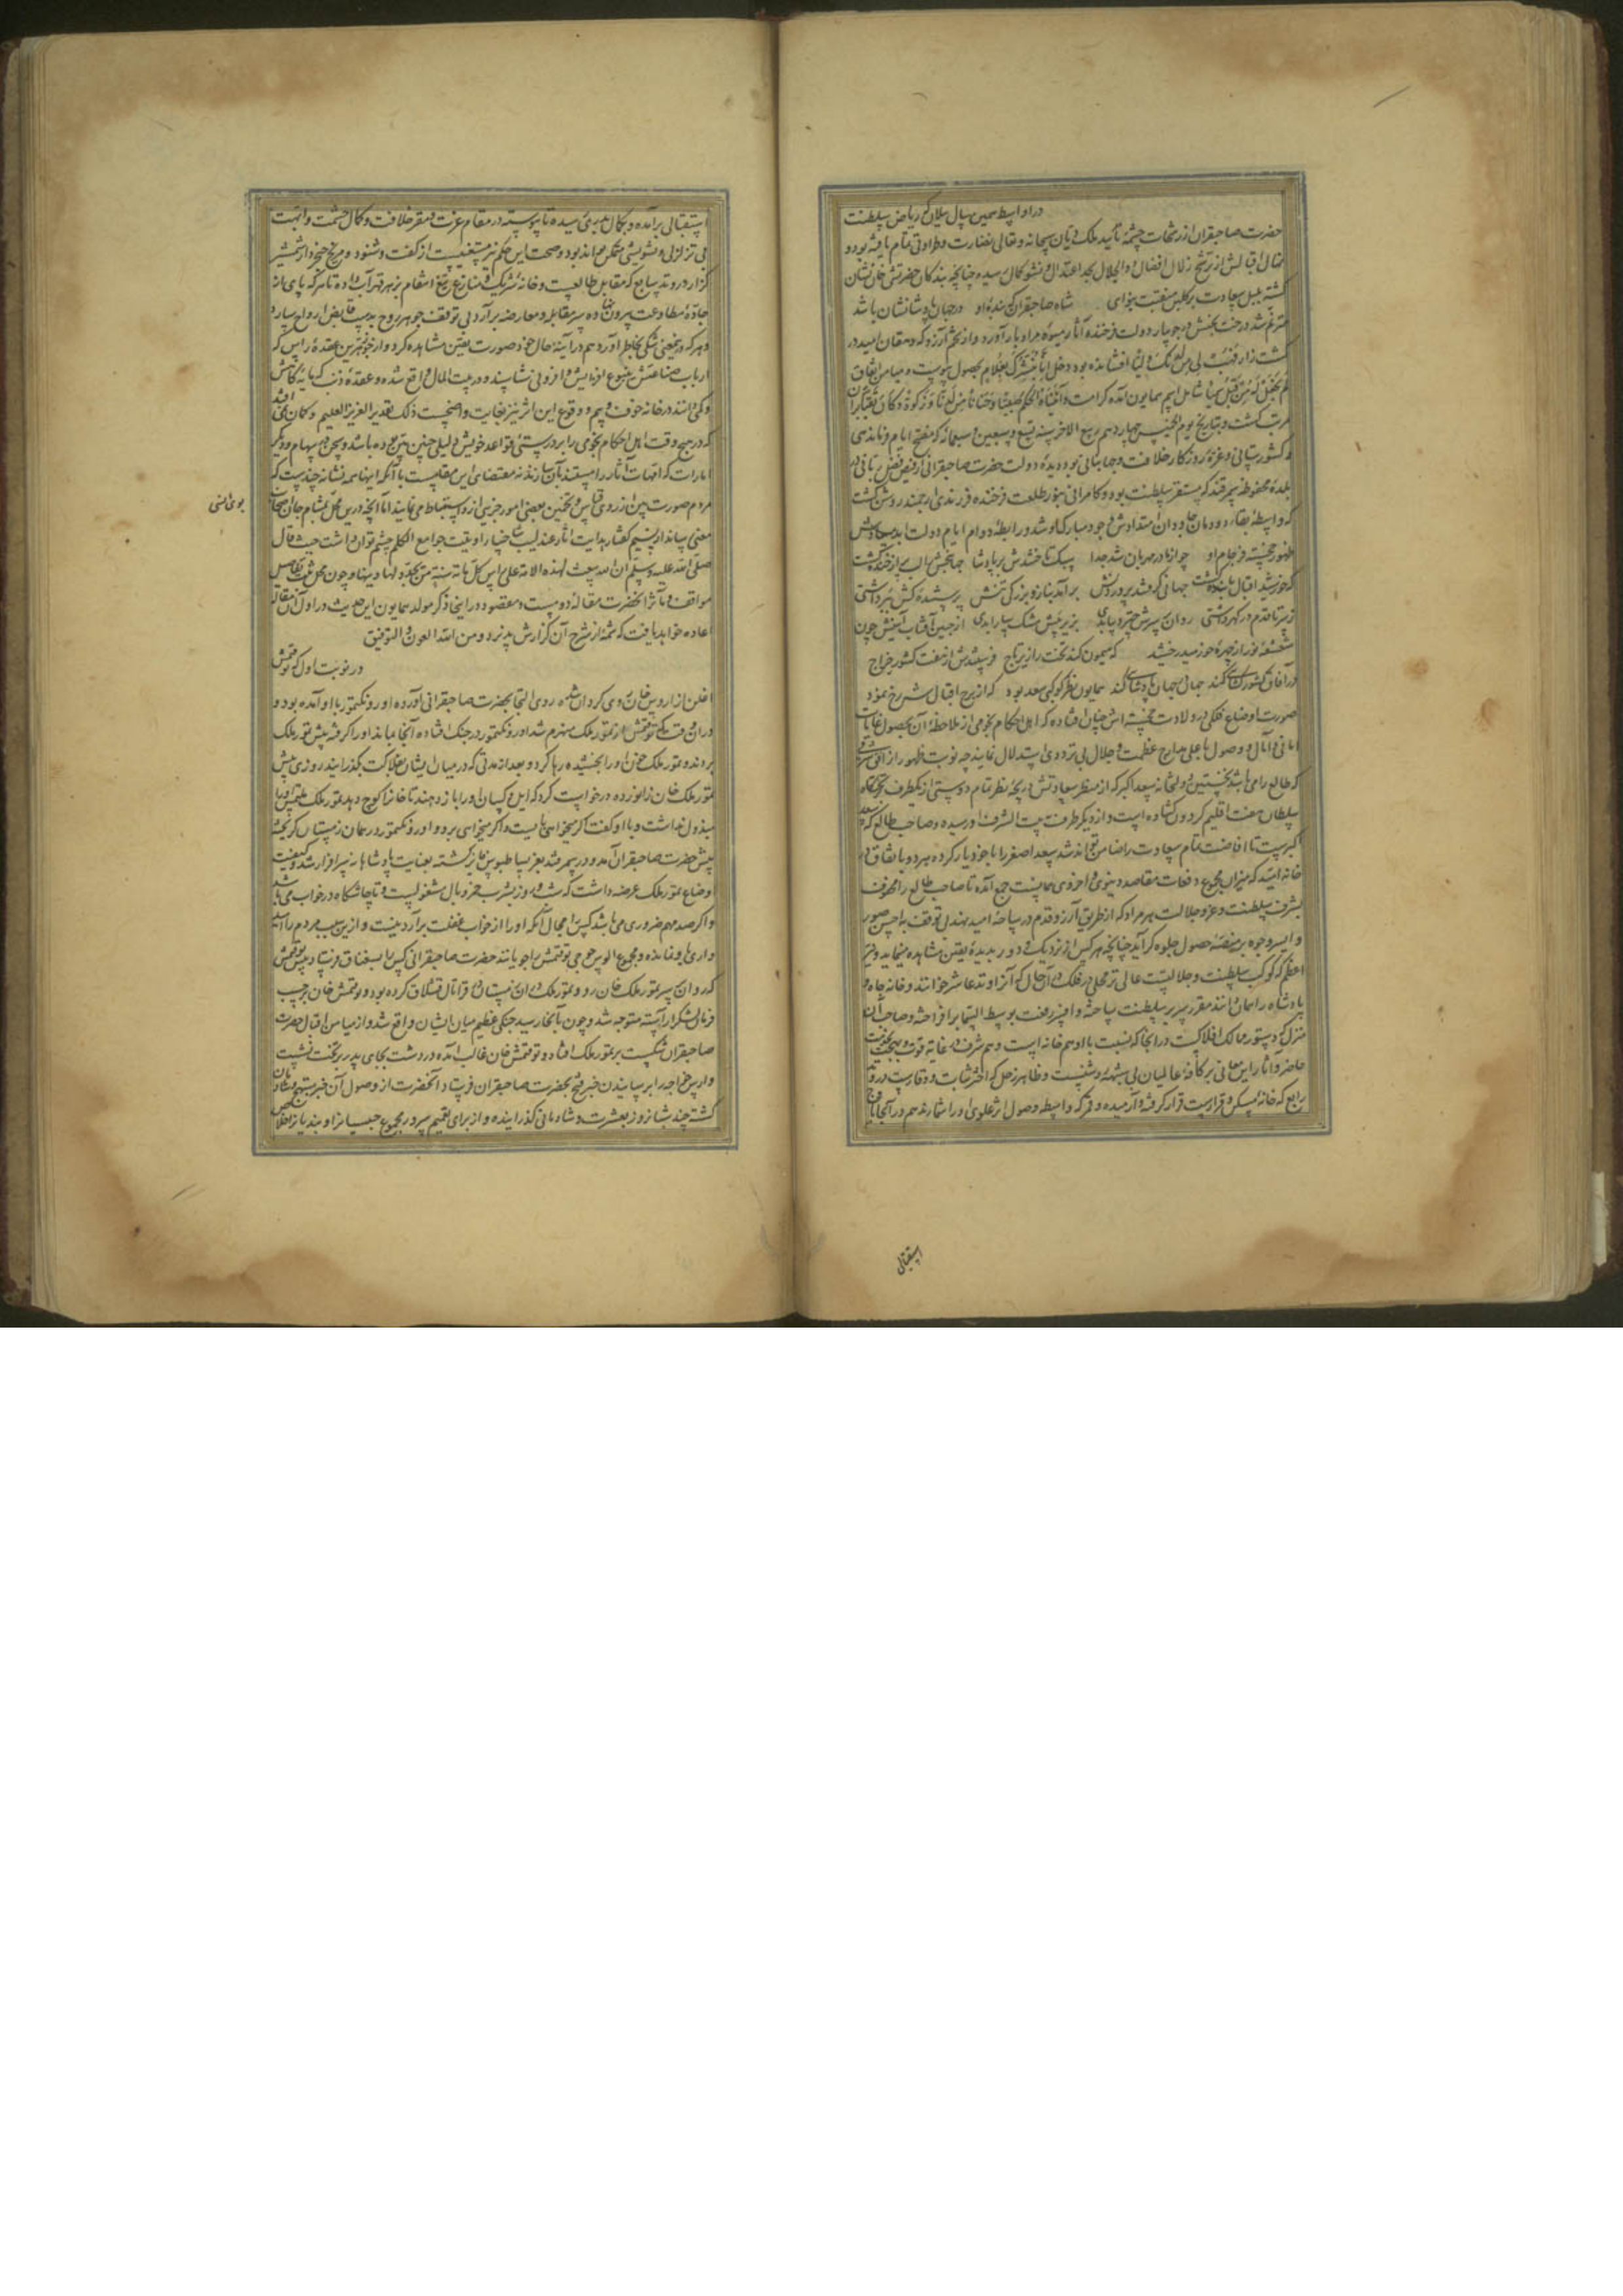 در اواسط همین سال میلان که ریاض سلطنت
حضرت صاحبقران از رشحات چشمهٔ تأیید ملک دیان سبحانه و تعالی نضارت و طراوتی تمام یافته بود و
نهال اقبالش از ترشح زلال افضال ذو الجلال بحد اعتدال و نشو کمال رسیده چنانچه بندکان حضرتش
کشته بلبل سعادت بر کلبن منقبت بنوای شاه صاحبقران که بندهٔ او در جهان پادشانشان باشد
مترنم شد درخت بختش در جویبار دولت فرخنده آثار میوهٔ مراد بار آورد و از تخم آرزو که دهقان امید در
کشت زار فهب لی من لدنک ولیا افشانده بود دخل انا نبشرک بغلام بحصول پیوست و میامن اتفاق
لم نجعل له من قبل سمیا شامل اسم همایون آمده کرامت و آتیناه الحکم صبیا و حنانا من لدنا و زکوة و کان تقیا بران
مرتب کشت و بتاریخ یوم الخمیس چهاردهم ربیع الاخر سنه تسع و سبعین و سبعمائه که مفتتح ایام فرماندهی
و کشورستانی و غرهٔ روزکار خلافت و جهانبانی بود دیدهٔ دولت حضرت صاحبقرانی از فیض فضل ربانی در
بلدهٔ محفوظه سمرقند که مستقر سلطنت بود و کامرانی بنور طلعت فرخنده فرزندی ارجمند روشن کشت
که واسطهٔ بقاء دودمان جاودان امتدادش وجود مبارک او شد و رابطهٔ دوام ایام دولت ابد پیوندش
ظهور خجسته فرجام او چو از مادر مهربان شد جدا سبک تاختندش بر پادشا
که خورشید اقبال تابنده کشت جهانی که فرشد پروردنش برآمد بنازه بزرکی تنش
ز سر تا قدم در کهر داشتی روان بر سرش چتر و پا بدی بزیر پیش مشک سارا بدی از جبین آفتاب آیینش چون
شعشعهٔ نور از چهرهٔ خورشید میدرخشید که میمون کند تخت را زیر تاج فرستندش از هفت کشور خراج
در آفاق کشورکشائی کند جهان در جهان پادشائی کند همایون نظر کوکبی سعد بود که از برج اقبال شهرخ نمود
صورت اوضاع فلکی در ولادت خجسته اش چنان افتاده که اهل احکام نجومی از ملاحظهٔ آن بحصول غایات
امانی و آمال و وصول باعلی مدارج عظمت و جلال بی ترددی استدلال نمایند چه نوبت ظهور از افق شرقی
که طالع را می باشد نخستین دولتخانه سعد اکبر که از منظر سعادتش دریچهٔ نظر تمام دوستی از یکطرف
سلطان هفت اقلیم کردون کشاده است و از دیکر طرف بیت الشرف او رسیده و صاحب طالع که
اکبرست تا افاضت تمام سعادت را ضامن تواند شد سعد اصغر را با خود یار کرده هر دو باتفاق در
خانه امید که میزان مجموع دفعات مقاصد دنیوی و اخروی جمع آمده تا صاحب طالع را محفوف
بشرف سلطنت و عز و جلالت هر مراد که از طریق آرزو قدم در ساحهٔ امید نهد بی توقف باحسن صور
و ایسر وجوه بر منصهٔ حصول جلوه کر آید چنانچه هر کس از نزدیک و دور بدیدهٔ یقین مشاهده مینماید و نیر
اعظم که کوکب سلطنت و جلالتست عالی تر محلی در فلک در آن حال که آنرا وتد عاشر خوانند و خانه جاه و
پادشاه را بمان دانند مقر سریر سلطنت ساخته و افسر رفعت بوسط السما برافراخته و صاحب آن
منزل که دستور ممالک افلاکست در انجا که نسبت با او هم خانه است و هم شرف در غایة قوت و بهجت
حاضر و آثار این معانی بر کافهٔ عالمیان بی شبهه روشنست و ظاهر زحل که اختر ثبات و وقارست در وتد
رابع که خانهٔ مسکن و قرارست قرار کرفته و آرمیده و قمر که واسطهٔ وصول اثر علوی او را شمارند هم در آنجا با
استقبالی
استقبالی برآمده و بکمال بدری رسیده تا پیوسته در مقام عزت و مقر خلافت و کمال حشمت و ابهت
بی تزلزلی و تشویشی متمکن بماند بود و صحت این حکم نیز مستغنیست از کفت و شنود و مریخ خنجر دار شمشیر
کزار در وتد سابع که مقابل طالعست و خانهٔ شریک و منازع تیغ انتقام بزهر قهر آب داده تا هر که پای از
جادهٔ مطاوعت بیرون نهاده سر مقابله و معارضه برآرد بی توقف جوهر روح بدست قابض ارواح سپارد
و هر که در معنی شکی بخاطر آورد هم در آینهٔ حال خود صورت یقین مشاهده کرد و از خنوترین عقدهٔ راس که
ارباب صناعتش منبوع افزایش و افزونی شناسند و در بیت المال واقع شده و عقدهٔ ذنب که مایهٔ کاهش
و کمی دانند در خانه خوف و بیم و وقوع این اثر نیز بغایت واضحست ذلک تقدیر العزیز العلیم و کمان نمی افتد
که در هیچ وقت اهل احکام نجومی را بر درستی قواعد خویش دلیلی چنین مبین بوده باشد و سخن سهام و دیکر
امارات که امهات آثار را مستند بآن سازند نه مقتضای این مقامست با آنکه اینها همه نشانهٔ چندست که
مردم صورت بین از روی قیاس و تخمین بعضی امور جزیی از و استنباط می نمایند اما آنچه درین محل بمشام جان اصحاب
بوی انسی
معنی رساند از نسیم کفتار هدایت آثار عندلیب اوتیت جوامع الکلم چشم توان داشت حیث قال
صلی الله علیه و سلم ان الله یبعث لهذه الامة علی راس کل مائة سنة من یجدد لها دینها و چون محل ثبت تفاصیل
مواقف و مآثر آنحضرت مقالهٔ دومست و مقصود در اینجا ذکر مولد همایون این حدیث در اول آن مقاله
اعاده خواهد یافت که شمه از شرح آن کزارش پذیرد و من الله العون و التوفیق
در نوبت اول که توقتمش
اغلن از اروس خان روی کردان شده روی التجا بحضرت صاحبقرانی آورده اورونکتمور با او آمده بود و
در آن وقت که توقتمش از تمور ملک منهزم شد اورونکتمور در جنک افتاده آنجا بماند او را کرفته پیش تمور ملک
بردند و تمور ملک خون او را بخشیده رها کرد و بعد از مدتی که در میان ایشان بفلاکت بکذرانید روزی پیش
تمور ملک خان زانو زده درخواست کرد که ایل و کسان او را باز دهند تا خانرا کوچ دهد تمور ملک ملتمس او را
مبذول نداشت و با او کفت اکر میخواهی بایست و اکر میخواهی برو و اورونکتمور در همان زمستان کریخته
پیش حضرت صاحبقران آمد و در سمرقند بعز بساط بوس فایز کشته بعنایت پادشاهانه سرافراز شد و کیفیت
اوضاع تمور ملک عرضه داشت که شب و روز بشرب خمر و بال مشغولست و تا چاشتکاه در خواب می باشد
و اکر صد مهم ضروری می باشد کس را مجال آنکه او را از خواب غفلت برآرد نیست و ازین سبب مردم را
و مجموع الوس توقتمش را جویانند حضرت صاحبقرانی کس بسغناق فرستاد پیش توقتمش
که روان بر سر تمور ملک خان رو و تمور ملک در آن زمستان در قراتال قشلاق کرده بود و توقتمش خان بر حسب
فرمان لشکر آراسته متوجه شد و چون بآنجا رسید جنکی عظیم میان ایشان واقع شد و از میامن اقبال حضرت
صاحبقران شکست بر تمور ملک افتاد و توقتمش خان غالب آمده در دشت بجای پدر بر تخت نشست
و اورس خواجه را برسانیدن خبر فتح بحضرت صاحبقران فرستاد آنحضرت از وصول آن خبر مبتهج و شادمان
کشته چند شبانروز بعشرت و شادمانی کذرانیده و از برای تعمیم سرور مجموع حبسیانرا و بندیانرا